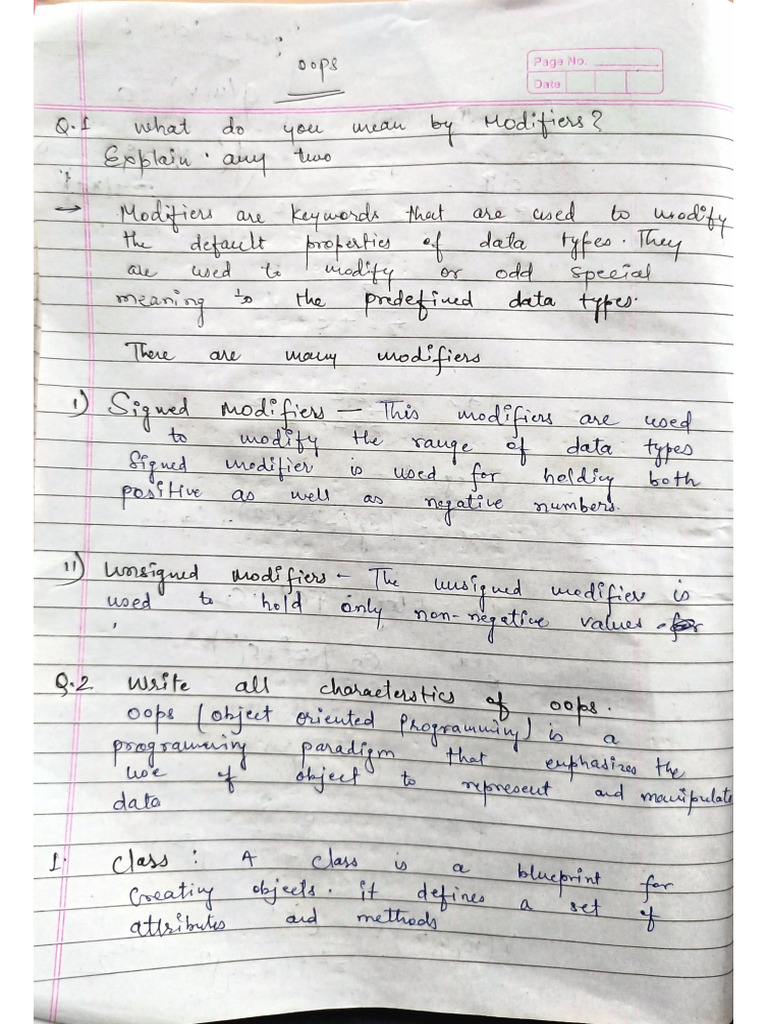 oops
Page No.
Date
Q.1 What do you mean by Modifiers?
Explain any two
→ Modifiers are keywords that are used to modify
the default properties of data types. They
are used to modify or odd special
meaning to the predefined data types.
There are many modifiers
i) Signed Modifiers — This modifiers are used
to modify the range of data types
Signed modifier is used for holding both
positive as well as negative numbers.
ii) Unsigned modifiers - The unsigned modifier is
used to hold only non-negative values
Q.2 Write all characterstics of oops.
oops (object oriented Programming) is a
programming paradigm that emphasizes the
use of object to represent and manipulate
data
1. Class : A class is a blueprint for
Creating objects. it defines a set of
attributes and methods